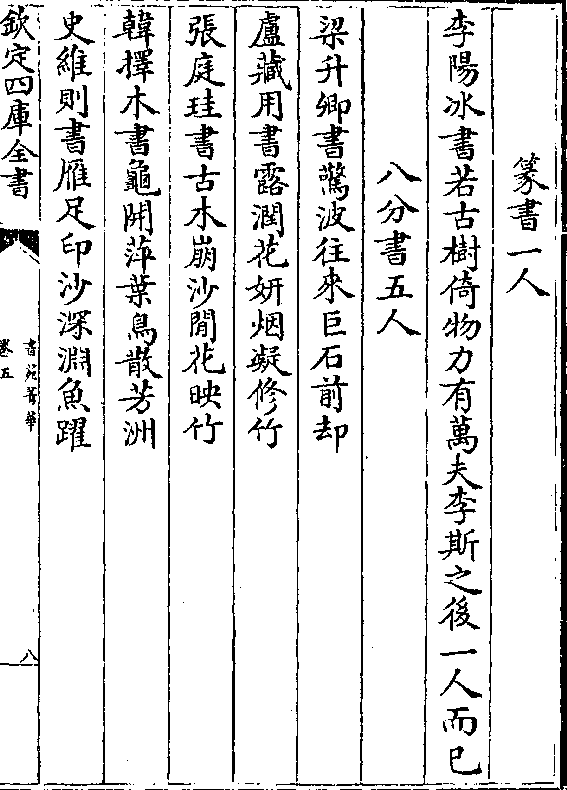 篆書一人
李陽冰書若古樹倚物力有萬夫李斯之後一人而已
八分書五人
梁升卿書驚波往來巨石前却
盧藏用書露潤花妍烟凝修竹
張庭珪書古木崩沙閒花映竹
韓擇木書龜開萍葉鳥散芳洲
史維則書雁足印沙深淵魚躍
欽定四庫全書
書苑菁華
卷五
八